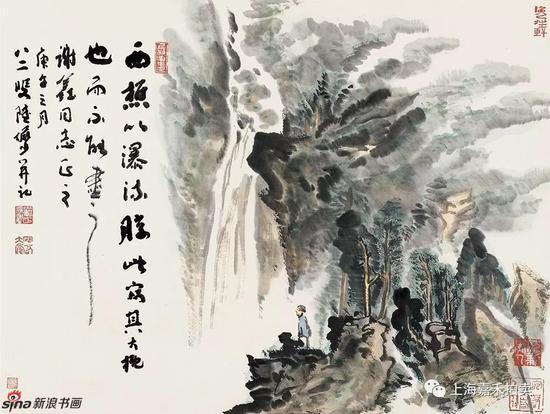 西樵以瀑流勝此寫其大概
也而不能盡
謝同志正之
庚午三月
八二叟陸儼少并記
sina 新浪书画
上海嘉禾拍卖